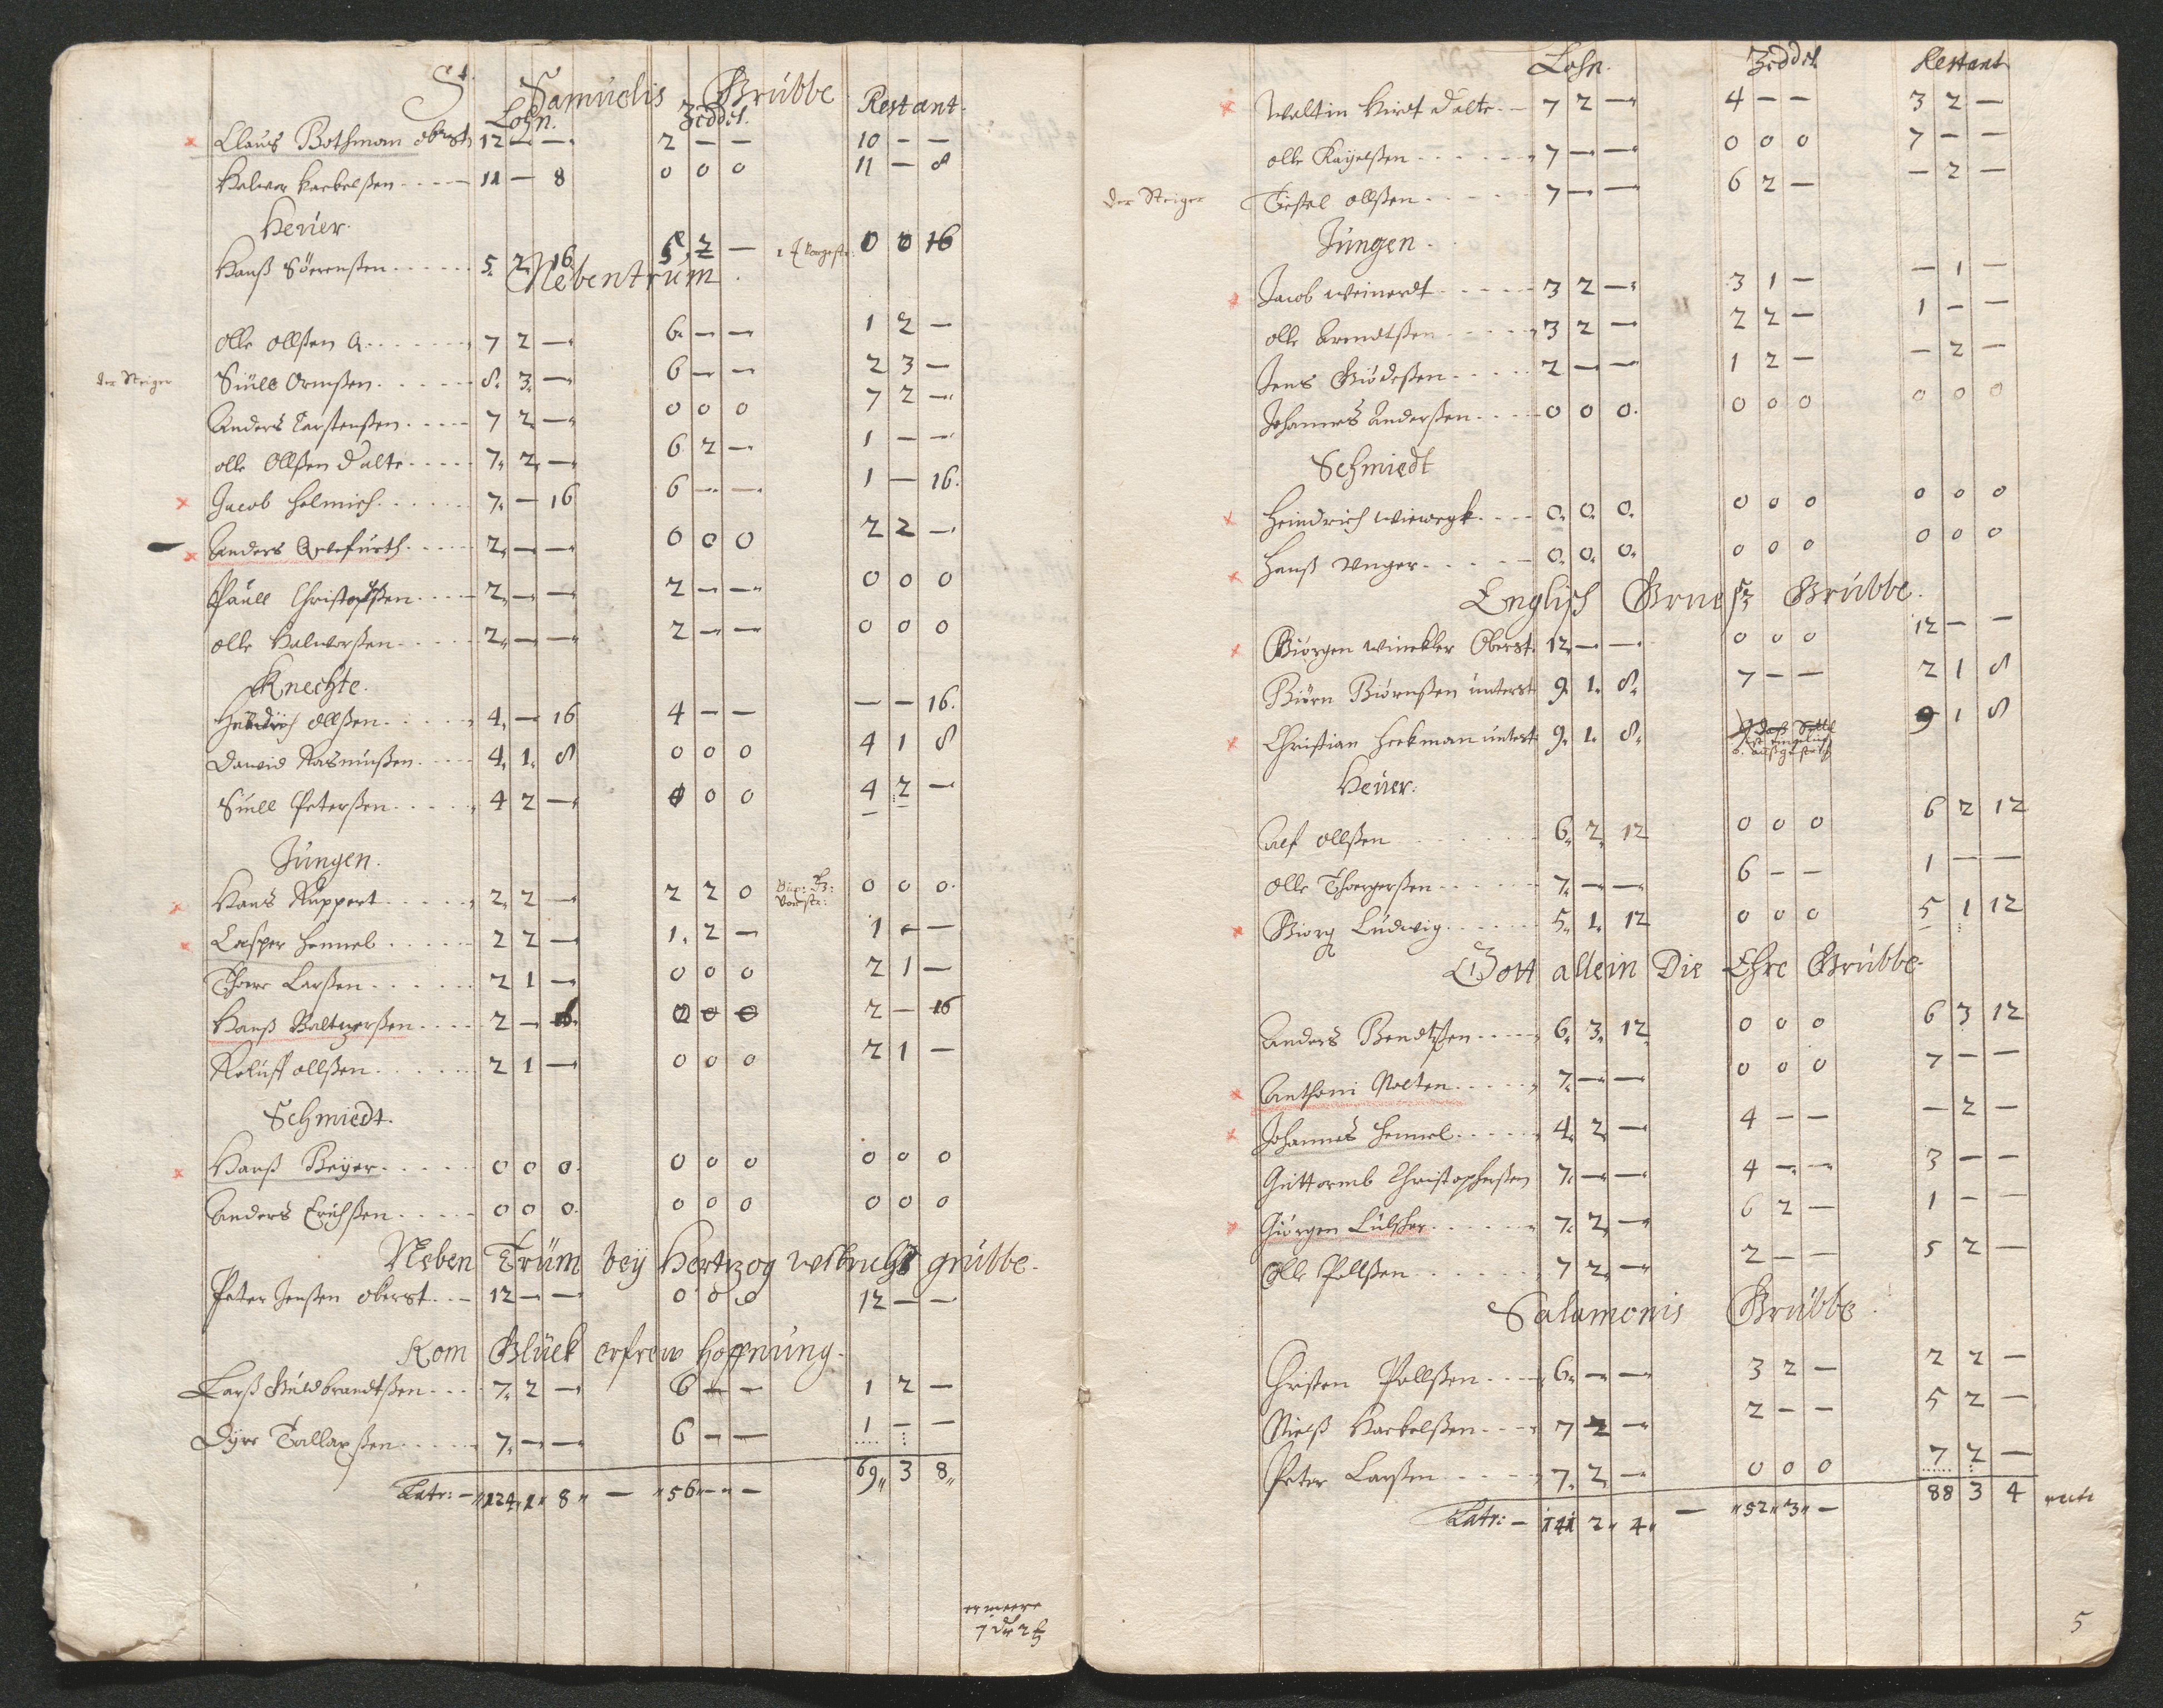 St. Samuelis Grubbe
Lohn. Zeddel. Restant.
Claus Bothman oberst 12 — — 2 — — 10 — —
Halvor Kackelßen 11 — 8 0 0 0 11 — 8
Heüer.
Hanß Söerenßen 5 2 16 5 2 — 0 0 16
Nebentrum
Olle Ollßen 7 2 — 6 — — 1 2 —
der Steiger Siulle Ormßen 8 3 — 6 — — 2 3 —
Anders Carstenßen 7 2 — 0 0 0 7 2 —
olle Ollßen d alte 7 2 — 6 2 — 1 — —
Jacob Helmich 7 — 16 6 — — 1 — 16
Anders Querfurth 2 — — 0 0 0 2 2 —
Paull Christophßen 2 — — 2 — — 0 0 0
olle Halworßen 2 — — 2 — — 0 0 0
Knechte.
Heindrich Ollßen 4 — 16 4 — — — — 16
Dawid Rasmußen 4 1 8 0 0 0 4 1 8
Siull Peterßen 4 2 — 0 0 0 4 2 —
Jungen.
Hans Ruppert 2 2 — 2 2 0 0 0 0
Casper Hennel 2 2 — 1 2 — 1 — —
Thore Larßen 2 1 — 0 0 0 2 1 —
Hanß Baltzerßen 2 — 16 0 0 0 2 — 16
Roluff ollßen 2 1 — 0 0 0 2 1 —
Schmiedt.
Hanß Beyer 0 0 0 0 0 0 0 0 0
Anders Erichßen 0 0 0 0 0 0 0 0 0
Neben Trüm bey Hertzog Ulrichs grubbe
Peter Jenßen oberst 12 — — 0 0 0 12 — —
Kom Glück erfrew Hoffnüng.
Larß Guldbrandtßen 7 2 — 6 — — 1 2 —
Dyre Tallaxßen 7 — — 6 — — 1 — —
Latr: — 124 1 8 — 56 — — 69 3 8
Lohn. Zeddel Restant
Waltin Hirdt d alte 7 2 — 4 — — 3 2 —
olle Kayelßen 7 — — 0 0 0 7 — —
der Steiger Tießel ollßen 7 — — 6 2 — — 2 —
Jüngen.
Jacob Weinerdt 3 2 — 3 1 — — 1 —
olle Arendtßen 3 2 — 2 2 — 1 — —
Jens Giödeßen 2 — — 1 2 — — 2 —
Johannes Anderßen 0 0 0 0 0 0 0 0 0
Schmiedt
Heindrich Wiewegk 0 0 0 0 0 0 0 0 0
Hanß Unger 0 0 0 0 0 0 0 0 0
Englisch Grueß Grubbe.
Giörgen Winckler Oberst 12 — — 0 0 0 12 — —
Biörn Biörnßen unterst 9 1 8 7 — — 2 1 8
Christian Heckman unterst 9 1 8 9 1 8
Heüer.
Alf ollßen 6 2 12 0 0 0 6 2 12
olle Thorgerßen 7 — — 6 — — 1 — —
Giörg Ludwig 5 1 12 0 0 0 5 1 12
Gott allein Die Ehre Grubbe
Anders Bendtßen 6 3 12 0 0 0 6 3 12
Anthoni Nolten 7 — — 0 0 0 7 — —
Johannes Hennel 4 2 — 4 — — — 2 —
Guttormb Christophersßen 7 — — 4 — — 3 — —
Giörgen Lülscher 7 2 — 6 2 — 1 — —
Olle Pollßen 7 2 — 2 — — 5 2 —
Salamonis Grubbe
Christen Pollßen 6 — — 3 2 — 2 2 —
Nielß Kackelßen 7 2 — 2 — — 5 2 —
Peter Larßen 7 2 — 0 0 0 7 2 —
Latr: — 141 2 4 — 52 3 — 88 3 4
5